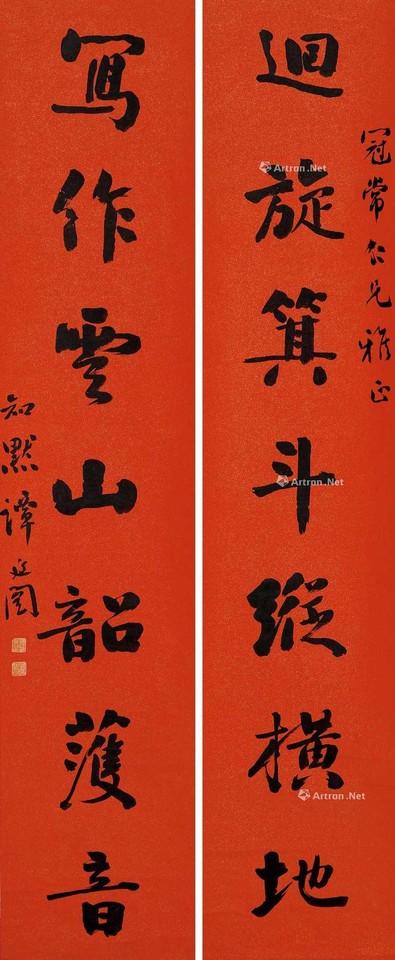 迴旋箕斗縱橫地
冠常仁兄雅正
寫作雲山韶頀音
知默譚延闓
Artron.Net
Artron.Net
Artron.Net